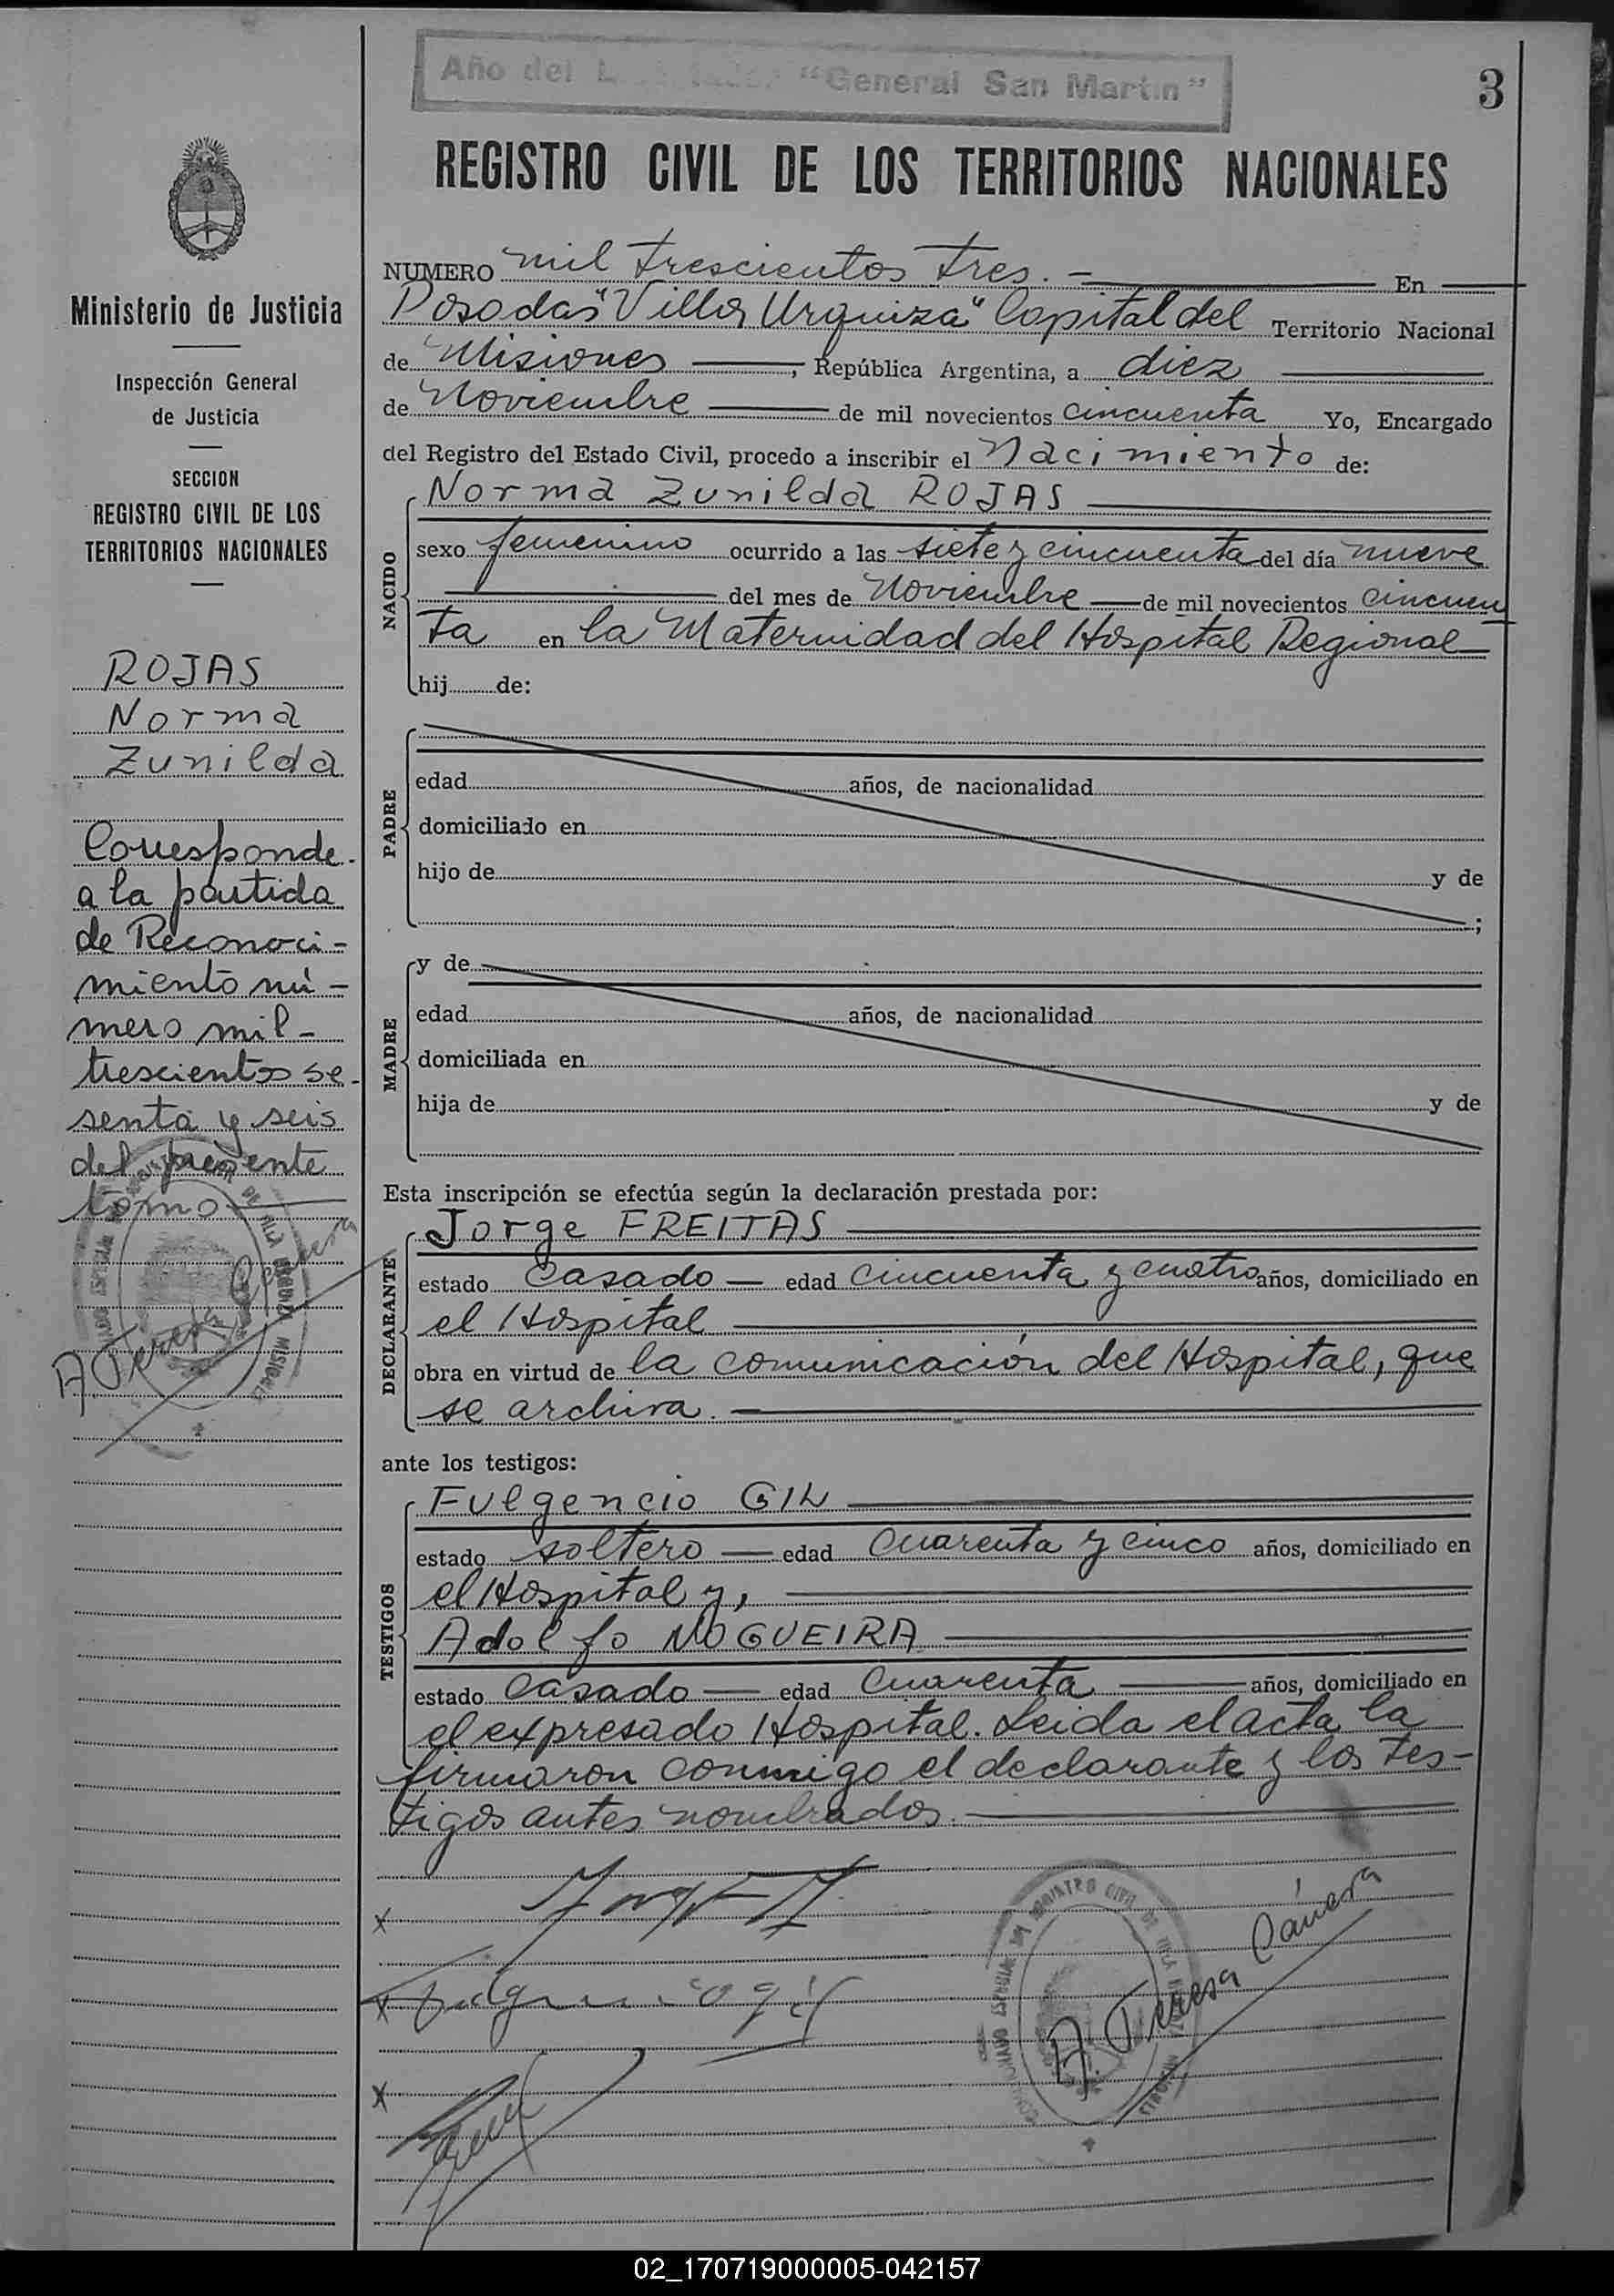 Año del "General San Martín"
3
REGISTRO CIVIL DE LOS TERRITORIOS NACIONALES
Ministerio de Justicia
Inspección General
de Justicia
SECCION
REGISTRO CIVIL DE LOS
TERRITORIOS NACIONALES
ROJAS
Norma
Zunilda
Corresponde
a la partida
de Reconoci-
miento nú-
mero mil-
trescientos se-
senta y seis
del presente
tomo
A Teresa Cánera
NUMERO mil trescientos tres.- En
Posadas "Villa Urquiza" Capital del Territorio Nacional
de Misiones, República Argentina, a diez
de Noviembre de mil novecientos cincuenta Yo, Encargado
del Registro del Estado Civil, procedo a inscribir el Nacimiento de:
NACIDO
Norma Zunilda ROJAS
sexo femenino ocurrido a las siete y cincuenta del día nueve
del mes de Noviembre de mil novecientos cincuen
ta en la Maternidad del Hospital Regional
hij de:
PADRE
edad años, de nacionalidad
domiciliado en
hijo de y de
;
MADRE
y de
edad años, de nacionalidad
domiciliada en
hija de y de
Esta inscripción se efectúa según la declaración prestada por:
DECLARANTE
Jorge FREITAS
estado casado — edad cincuenta y cuatro años, domiciliado en
el Hospital
obra en virtud de la comunicación del Hospital, que
se archiva.
ante los testigos:
TESTIGOS
Fulgencio GIL
estado soltero — edad cuarenta y cinco años, domiciliado en
el Hospital y,
Adolfo NOGUEIRA
estado casado — edad cuarenta años, domiciliado en
el expresado Hospital. Leida el acta la
firmaron conmigo el declarante y los tes-
tigos antes nombrados.
x
x Fulgencio gil
x
A. Teresa Cánera
02_170719000005-042157